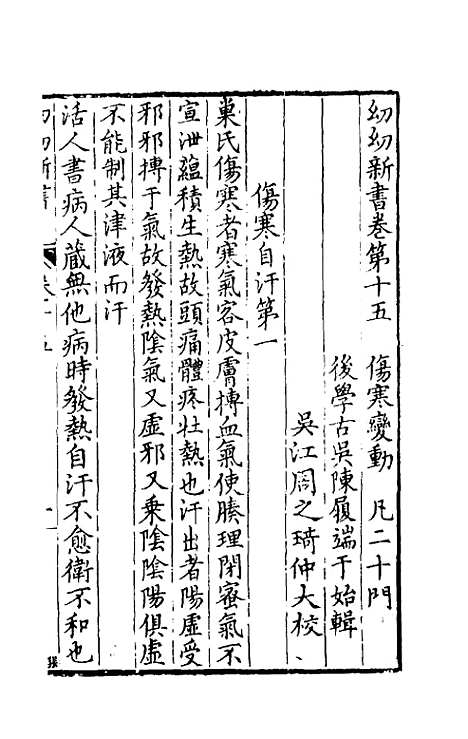 幼幼新書卷第十五　傷寒變動　凡二十門
後學古吳陳履端于始輯
吳江周之琦仲大校
傷寒自汗第一
巢氏傷寒者寒氣客皮膚搏血氣使腠理閉蜜氣不
宣泄蘊積生熱故頭痛體疼壯熱也汗出者陽虛受
邪邪搏于氣故發熱陰氣又虛邪又乘陰陰陽俱虛
不能制其津液而汗
活人書病人蔵無他病時發熱自汗不愈衛不和也
幼幼新書
卷十五
一